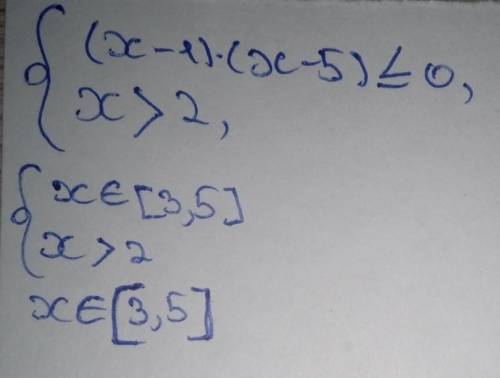 { (x-1)·(x-5)≤0,
x>2,
{ x∈[3,5]
x>2
x∈[3,5]